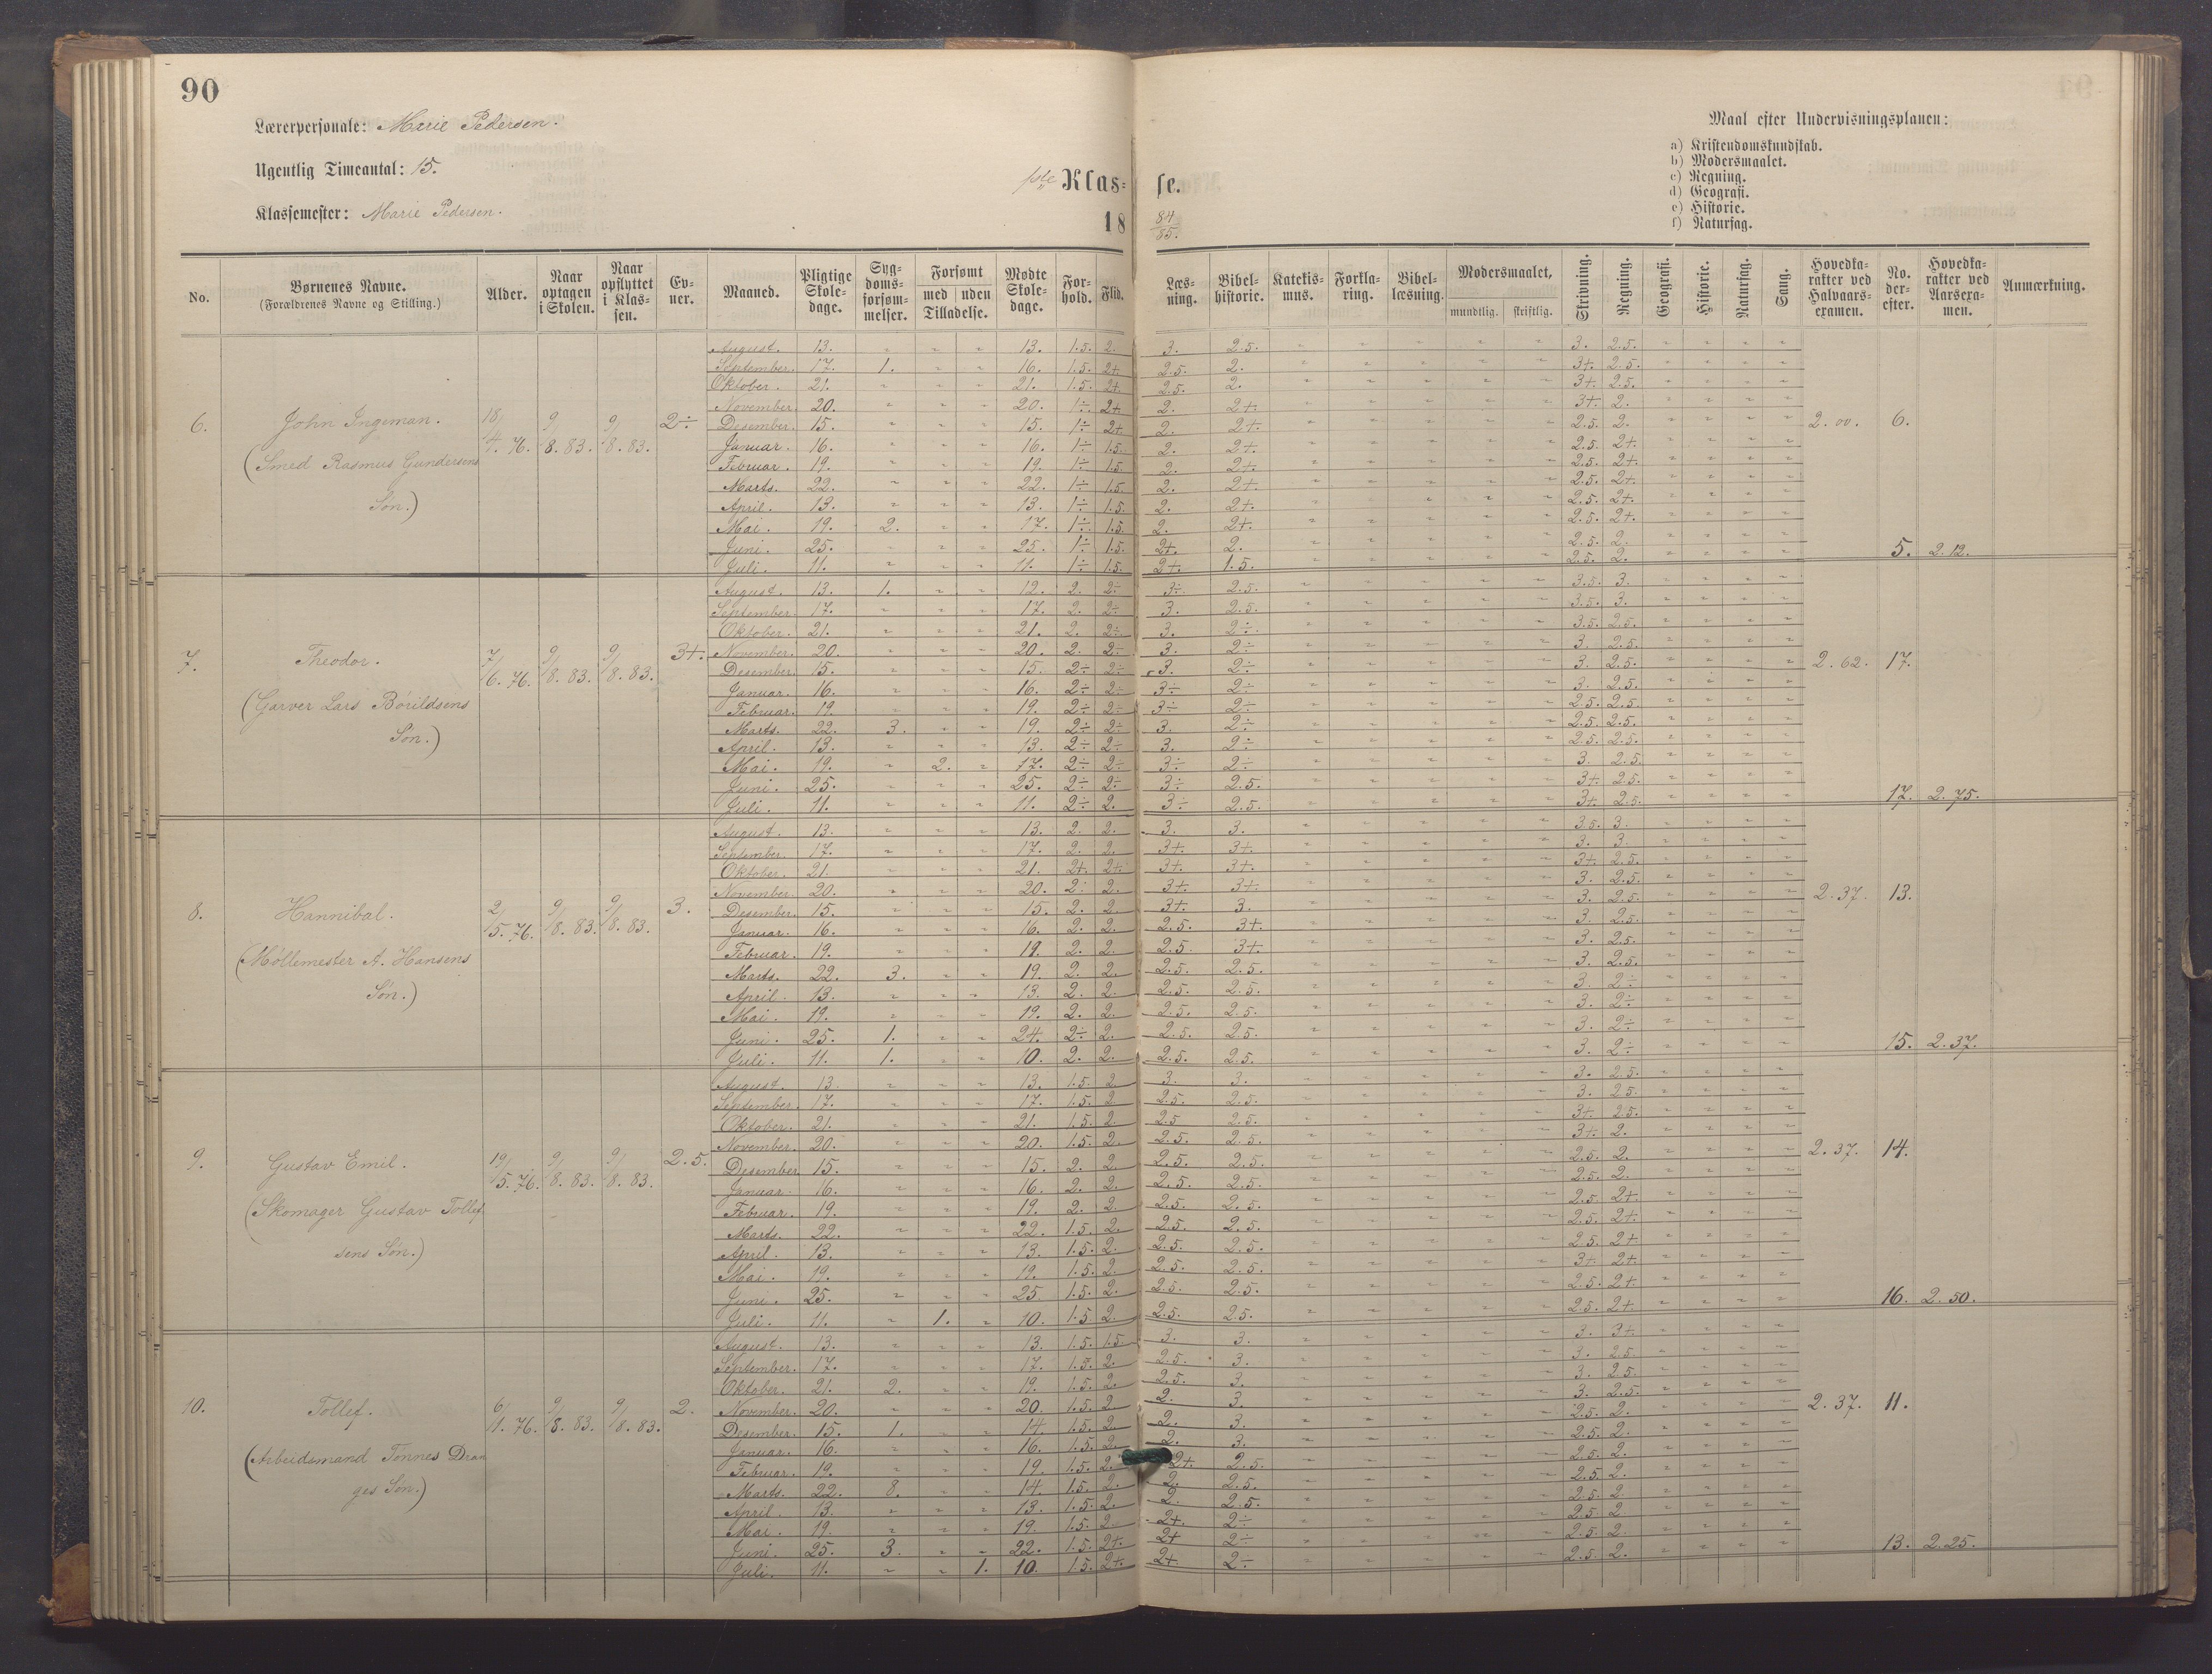 90
Lærerpersonale: Marie Pedersen.
Ugentlig Timeantal: 15.
Klassemester: Marie Pedersen.
1ste Klasse.
18 84/85.
Maal efter Undervisningsplanen:
a) Kristendomskundskab.
b) Modersmaalet.
c) Regning.
d) Geografi.
e) Historie.
f) Naturfag.
No. | Børnenes Navne. (Forældrenes Navne og Stilling.) | Alder. | Naar optagen i Skolen. | Naar opflyttet i Klassen. | Evner. | Maaned. | Pligtige Skoledage. | Sygdomsforsømmelser. | Forsømt med / uden Tilladelse. | Mødte Skoledage. | Forhold. | Flid. | Læsning. | Bibelhistorie. | Katekismus. | Forklaring. | Bibellæsning. | Modersmaalet, mundtlig. | skriftlig. | Skrivning. | Regning. | Geografi. | Historie. | Naturfag. | Sang. | Hovedkarakter ved Halvaarsexamen. | No. derefter. | Hovedkarakter ved Aarsexamen. | Anmærkning.
6. John Ingeman. (Smed Rasmus Gundersens Søn.) 18/4. 76. 9/8. 83. 9/8. 83. 2÷ 2.00. 6.
August. 13. " " " 13. 1.5. 2. 3. 2.5. " " " " " 3. 2.5. " " " "
September. 17. 1. " " 16. 1.5. 2+. 2.5. 2. " " " " " 3+. 2.5. " " " "
Oktober. 21. " " " 21. 1.5. 2+. 2.5. 2. " " " " " 3+. 2.5. " " " "
November. 20. " " " 20. 1÷. 2+. 2. 2+. " " " " " 3+. 2. " " " "
Desember. 15. " " " 15. 1÷ 2+. 2. 2+. " " " " " 2.5. 2. " " " "
Januar. 16. " " " 16. 1÷ 1.5. 2. 2+. " " " " " 2.5. 2+. " " " "
Februar. 19. " " " 19. 1÷ 1.5. 2. 2+. " " " " " 2.5. 2+. " " " "
Marts. 22. " " " 22. 1÷ 1.5. 2. 2+. " " " " " 2.5. 2+. " " " "
April. 13. " " " 13. 1÷ 1.5. 2. 2+. " " " " " 2.5. 2+. " " " "
Mai. 19. 2. " " 17. 1÷. 1.5. 2. 2+. " " " " " 2.5. 2+. " " " "
Juni. 25. " " " 25. 1÷ 1.5. 2+. 2. " " " " " 2.5. 2. " " " "
Juli. 11. " " " 11. 1÷ 1.5. 2+. 1.5. " " " " " 2.5. 2. " " " " 5. 2.12.
7. Theodor. (Garver Lars Bórildsens Søn.) 7/6. 76. 9/8. 83. 9/8. 83. 3+. 2.62. 17.
August. 13. 1. " " 12. 2. 2÷ 3÷. 2.5. " " " " " 3.5. 3. " " " "
September. 17. " " " 17. 2. 2÷ 3. 2.5. " " " " " 3.5. 3. " " " "
Oktober. 21. " " " 21. 2. 2÷ 3. 2÷. " " " " " 3.5. 2.5. " " " "
November. 20. " " " 20. 2. 2÷ 3. 2÷ " " " " " 3. 2.5. " " " "
Desember. 15. " " " 15. 2÷ 2÷ 3. 2÷ " " " " " 3. 2.5. " " " "
Januar. 16. " " " 16. 2÷ 2÷ 3÷ 2÷ " " " " " 3. 2.5. " " " "
Februar. 19. " " " 19. 2÷ 2÷ 3÷ 2÷ " " " " " 2.5. 2.5. " " " "
Marts. 22. 3. " " 19. 2÷ 2÷ 3. 2÷ " " " " " 2.5. 2.5. " " " "
April. 13. " " " 13. 2÷ 2÷ 3. 2÷ " " " " " 2.5. 2.5. " " " "
Mai. 19. " 2. " 17. 2÷ 2÷ 3÷ 2÷ " " " " " 3. 2.5. " " " "
Juni. 25. " " " 25. 2÷ 2÷ 3÷ 2.5. " " " " " 3+. 2.5. " " " "
Juli. 11. " " " 11. 2÷ 2. 3÷ 2.5. " " " " " 3+. 2.5. " " " " 17. 2.75.
8. Hannibal. (Møllemester A. Hansens Søn.) 2/5. 76. 9/8. 83. 9/8. 83. 3. 2.37. 13.
August. 13. " " " 13. 2. 2. 3. 3. " " " " " 3.5. 3. " " " "
September. 17. " " " 17. 2. 2. 3+. 3+. " " " " " 3. 3. " " " "
Oktober. 21. " " " 21. 2+. 2+. 3+. 3+. " " " " " 3+. 2.5. " " " "
November. 20. " " " 20. 2. 2. 3+. 3+. " " " " " 3. 2.5. " " " "
Desember. 15. " " " 15. 2. 2. 3+. 3. " " " " " 3. 2.5. " " " "
Januar. 16. " " " 16. 2. 2. 2.5. 3+. " " " " " 3. 2.5. " " " "
Februar. 19. " " " 19. 2. 2. 2.5. 3+. " " " " " 3. 2.5. " " " "
Marts. 22. 3. " " 19. 2. 2. 2.5. 2.5. " " " " " 3. 2.5. " " " "
April. 13. " " " 13. 2. 2. 2.5. 2.5. " " " " " 3. 2÷ " " " "
Mai. 19. " " " 19. 2. 2. 2.5. 2.5. " " " " " 3. 2÷ " " " "
Juni. 25. 1. " " 24. 2÷ 2. 2.5. 2.5. " " " " " 3. 2÷ " " " "
Juli. 11. 1. " " 10. 2. 2. 2.5. 2.5. " " " " " 3. 2÷ " " " " 15. 2.37.
9. Gustav Emil. (Skomager Gustav Tollefsens Søn.) 19/5. 76. 9/8. 83. 9/8. 83. 2.5. 2.37. 14.
August. 13. " " " 13. 1.5. 2. 3. 3. " " " " " 3. 2.5. " " " "
September. 17. " " " 17. 1.5. 2. 2.5. 2.5. " " " " " 3. 2.5. " " " "
Oktober. 21. " " " 21. 1.5. 2. 2.5 2.5. " " " " " 3+. 2.5. " " " "
November. 20. " " " 20. 1.5. 2. 2.5. 2.5. " " " " " 3+. 2. " " " "
Desember. 15. " " " 15. 2. 2. 2.5. 2.5. " " " " " 2.5. 2. " " " "
Januar. 16. " " " 16. 2. 2. 2.5. 2.5. " " " " " 2.5. 2. " " " "
Februar. 19. " " " 19. 2. 2. 2.5. 2.5. " " " " " 2.5. 2+. " " " "
Marts. 22. " " " 22. 1.5. 2. 2.5. 2.5. " " " " " 2.5. 2+. " " " "
April. 13. " " " 13. 1.5. 2. 2.5. 2.5. " " " " " 2.5. 2+ " " " "
Mai. 19. " " " 19. 1.5. 2. 2.5. 2.5. " " " " " 3+. 2+. " " " "
Juni. 25. " " " 25. 1.5. 2. 2.5. 2.5. " " " " " 2.5. 2+. " " " "
Juli. 11. " 1. " 10. 1.5 2. 2.5. 2.5. " " " " " 2.5. 2+. " " " " 16. 2.50.
10. Tollef. (Arbeidsmand Tønnes Dranges Søn.) 6/11. 76. 9/8. 83. 9/8. 83. 2. 2.37. 11.
August. 13. " " " 13. 1.5. 1.5. 3. 3. " " " " " 3. 3+. " " " "
September. 17. " " " 17. 1.5. 2. 2.5. 3. " " " " " 3. 2.5. " " " "
Oktober. 21. 2. " " 19. 1.5. 2. 2.5. 3. " " " " " 3. 2.5. " " " "
November. 20. " " " 20. 1.5. 2. 2. 3. " " " " " 3. 2.5. " " " "
Desember. 15. 1. " " 14. 1.5. 2. 2. 3. " " " " " 2.5. 2. " " " "
Januar. 16. " " " 16. 1.5. 2. 2. 3. " " " " " 2.5. 2. " " " "
Februar. 19. " " " 19. 1.5. 2. 2+. 2.5. " " " " " 2.5. 2. " " " "
Marts. 22. 8. " " 14. 1.5. 2. 2. 2.5. " " " " " 2.5. 2. " " " "
April. 13. " " " 13. 1.5. 2. 2. 2.5. " " " " " 2.5. 2 " " " "
Mai. 19. " " " 19. 1.5. 2. 2+. 2÷ " " " " " 2.5 2. " " " "
Juni. 25. 3. " " 22. 1.5. 2+. 2+ 2÷ " " " " " 2.5. 2. " " " "
Juli. 11. " " 1. 10. 1.5 2+. 2+. 2÷. " " " " " 2.5. 2. " " " " 13. 2.25.